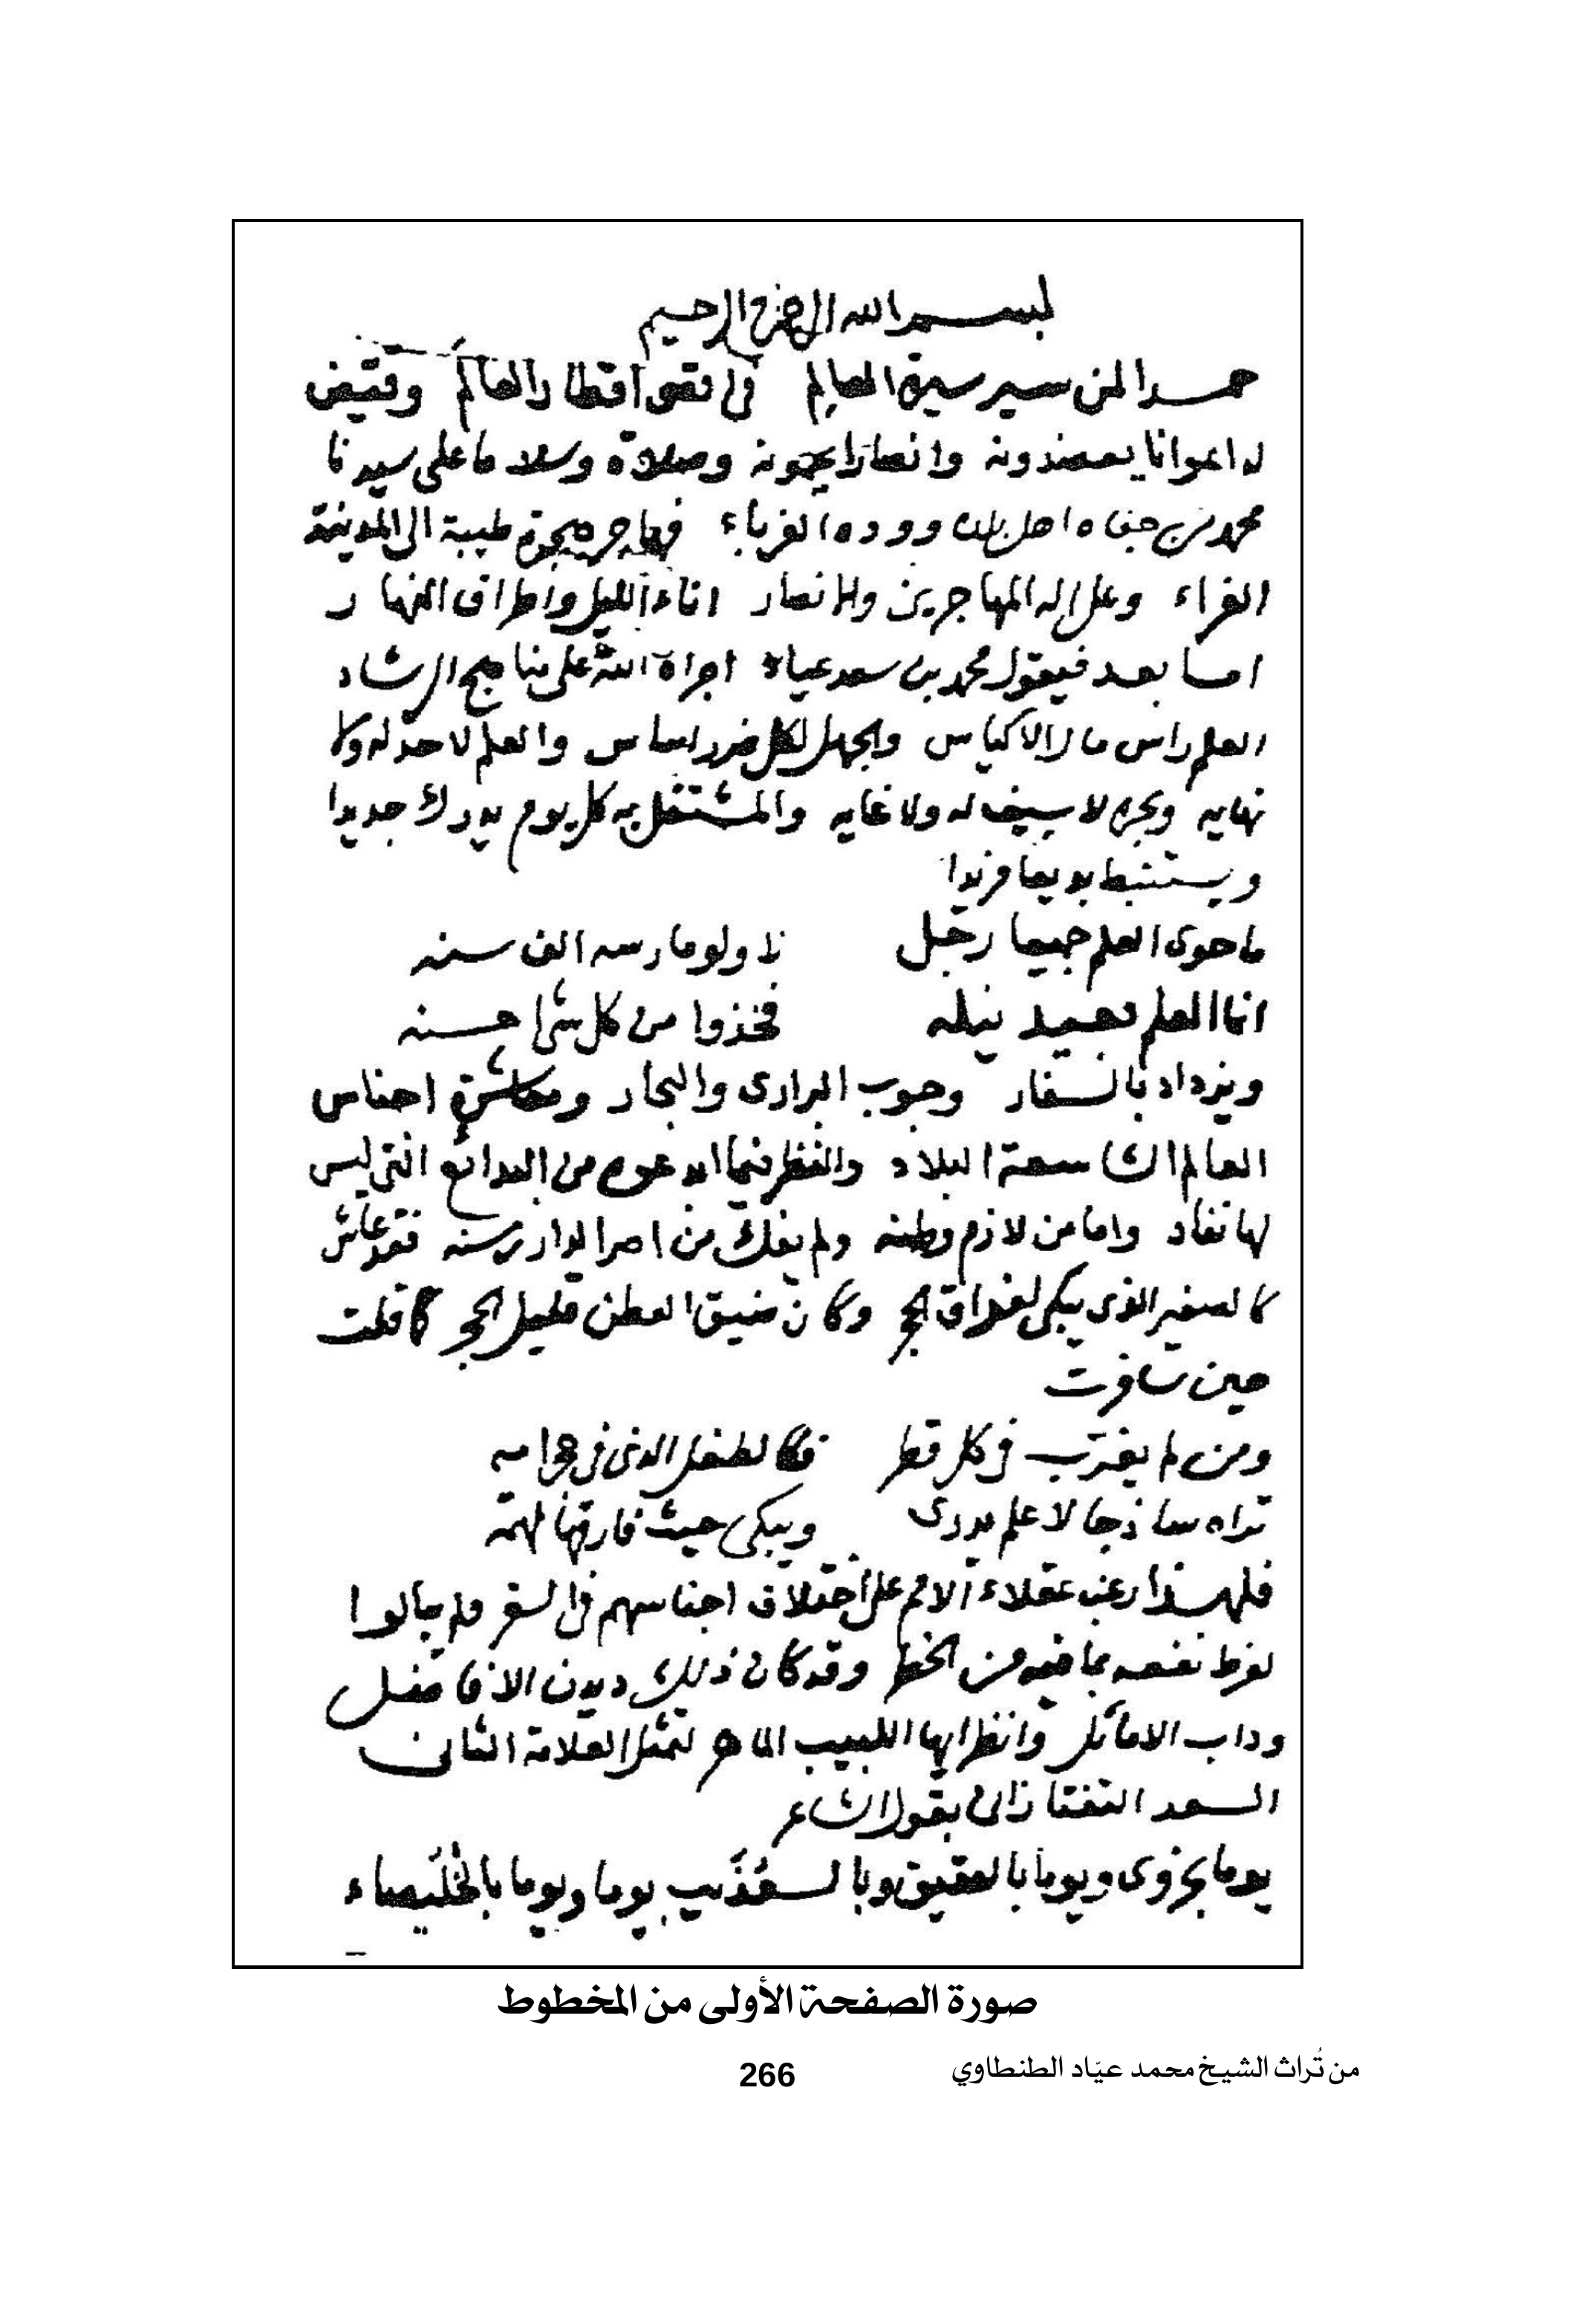 بسم الله الرحمن الرحيم
حمدا لمن سير سيرة العالم في اقصى اقطار العالم وقيض
له اعوانا يعضدونه وانصارا يحمونه وصلاة وسلاما على سيدنا
محمد من جفاه اهل بلده ووده الغرباء فهاجر هجرة طيبة الى المدينة
الغراء وعلى اله المهاجرين والانصار اناء الليل واطراف النهار
اما بعد فيقول محمد بن سعد عياد اجراه الله على مناهج الرشاد
العلم راس مال الاكياس والجهل لكل ضرر اساس والعلم لا حد له ولا
نهايه وبحره لا سيف له ولا غايه والمشتغل به كل يوم يدرك جديدا
ويستنبط بديعا فريدا
ما حوى العلم جميعا رجل لا ولو مارسه الف سنه
انما العلم بعيد نيله فخذوا من كل شئ احسنه
ويزداد بالسفار وجوب البرارى والبحار ومعاشرة اجناس
العالم الشاسعة البلاد والنظر فيما ابدعوه من البدائع التى ليس
لها نفاد واما من لازم وطنه ولم يفك من اسر الدار رسنه فقد عاش
كالصغير الذى يبكى لفراق الحجر وكان ضيق العطن قليل الحجر كما قلت
حين سافرت
ومن لم يغترب فى كل قطر فكالطفل الذى فى حجر اميه
تراه ساذجا لا علم يدرى ويبكى حيث فارقها لهمّه
فلهذا رغب عقلاء الامم على اختلاف اجناسهم فى السفر ولم يبالوا
لفرط نفعه بما فيه من الخطر وقد كان ذلك ديدن الافاضل
وداب الاماثل وانظر ايها اللبيب الماهر لتمثل العلامة الثانى
السعد التفتازانى بقول الشاعر
يوما بحزوى ويوما بالعقيق وبالعذيب يوما ويوما بالخليصاء
صورة الصفحة الأولى من المخطوط
من تُراث الشيخ محمد عيّاد الطنطاوي 266